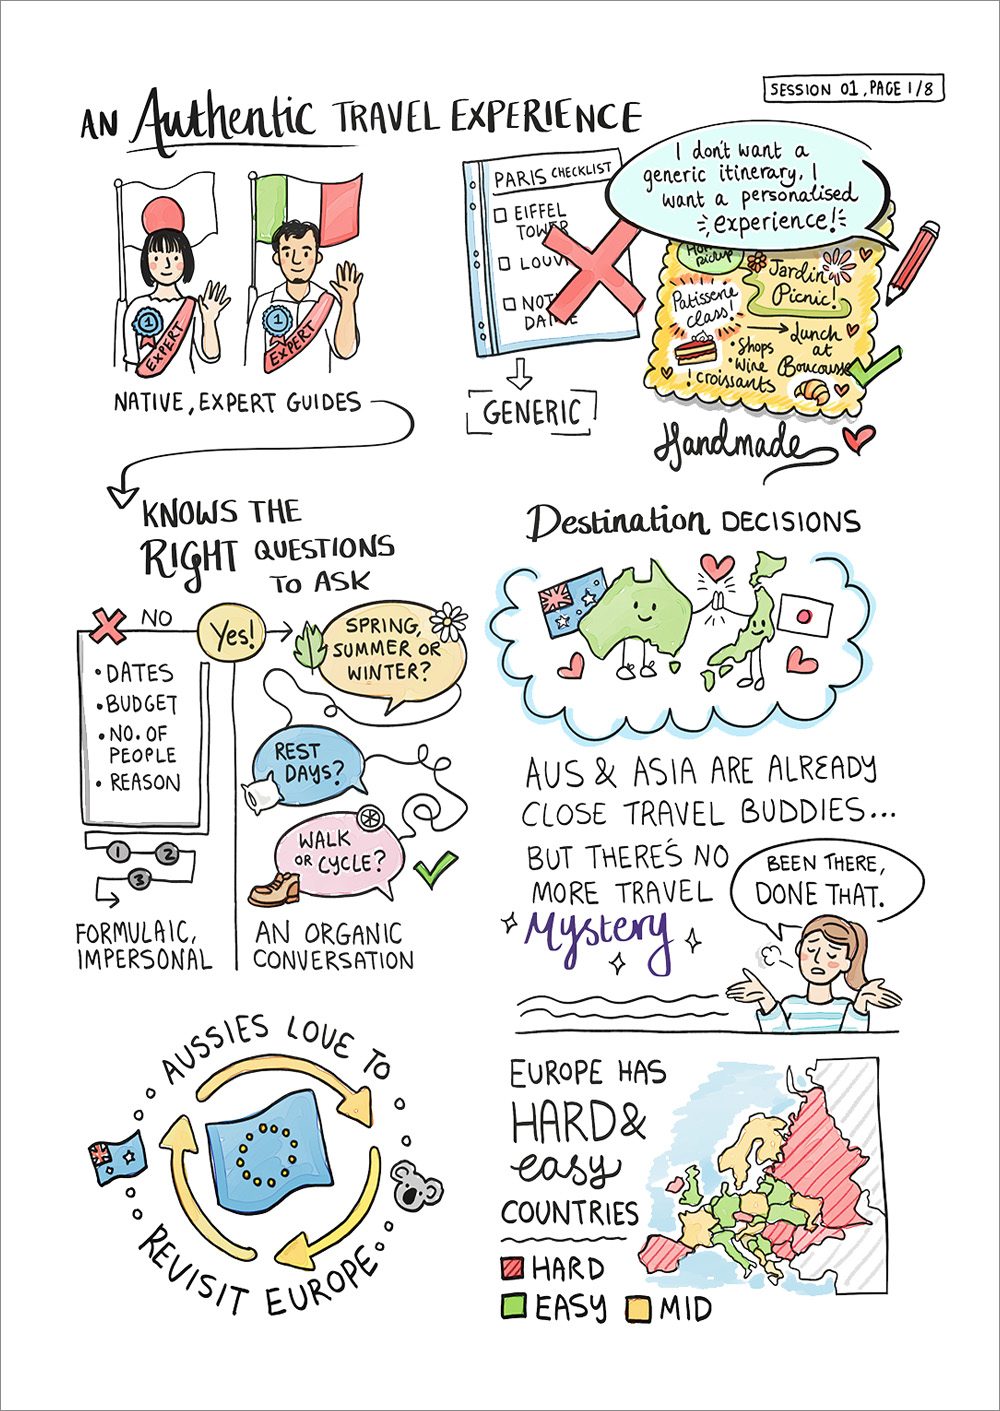 SESSION 01, PAGE 1/8
AN Authentic TRAVEL EXPERIENCE
1
EXPERT
1
EXPERT
NATIVE, EXPERT GUIDES
PARIS CHECKLIST
EIFFEL
TOWER
LOUV
NOT
DAME
GENERIC
I don't want a
generic itinerary, I
want a personalised
experience!
pickup
Jardin
Picnic!
Patisserie
class!
Lunch
at
Boucousse
• Shops
• Wine
! croissants
Handmade
KNOWS THE
RIGHT QUESTIONS
TO ASK
NO
• DATES
• BUDGET
• NO. OF
PEOPLE
• REASON
1 2
3
FORMULAIC,
IMPERSONAL
Yes!
SPRING,
SUMMER OR
WINTER?
REST
DAYS?
WALK
OR CYCLE?
AN ORGANIC
CONVERSATION
Destination DECISIONS
AUS & ASIA ARE ALREADY
CLOSE TRAVEL BUDDIES...
BUT THERE'S NO
MORE TRAVEL
Mystery
BEEN THERE,
DONE THAT.
AUSSIES LOVE TO
REVISIT EUROPE
EUROPE HAS
HARD &
easy
COUNTRIES
HARD
EASY MID